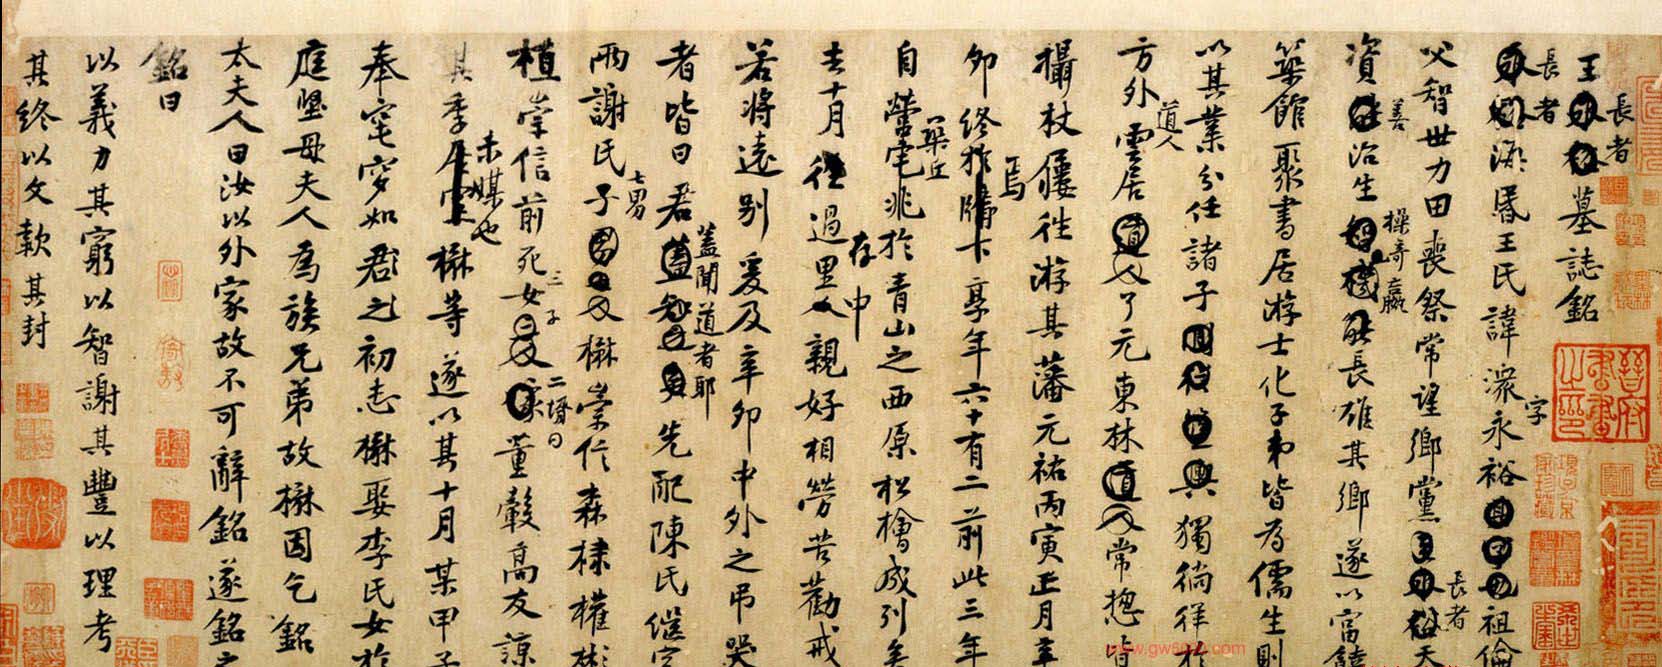 王長者墓誌銘
長者諱王氏諱濙永裕字祖倫
父智世力田喪祭常謹鄉黨長者天
資善治生操奇贏能長雄其鄉遂以富饒
築館聚書居游士化子弟皆為儒生則
以其業分任諸子獨徜徉於
方外道人雲居了元東林常揔皆
攝杖屨往游其藩元祐丙寅正月辛
卯終於牖下享年六十有二前此三年
自營窀兆於青山之西原松檜成列矣
去十月過里中存親好相勞苦勸戒
若將遠別爰及辛卯中外之弔哭
者皆曰君蓋聞道者耶先配陳氏繼室
兩謝氏子七男楙崇信森棣權彬
植崇信前死女三子二壻曰董毅高友諒
其季未嫁也楙等遂以其十月某甲子
奉窀穸如君之初志楙娶李氏女於
庭堅母夫人為族兄弟故楙因乞銘
太夫人曰汝以外家故不可辭銘遂銘之
銘曰
以義力其窮以智謝其豐以理考
其終以文款其封